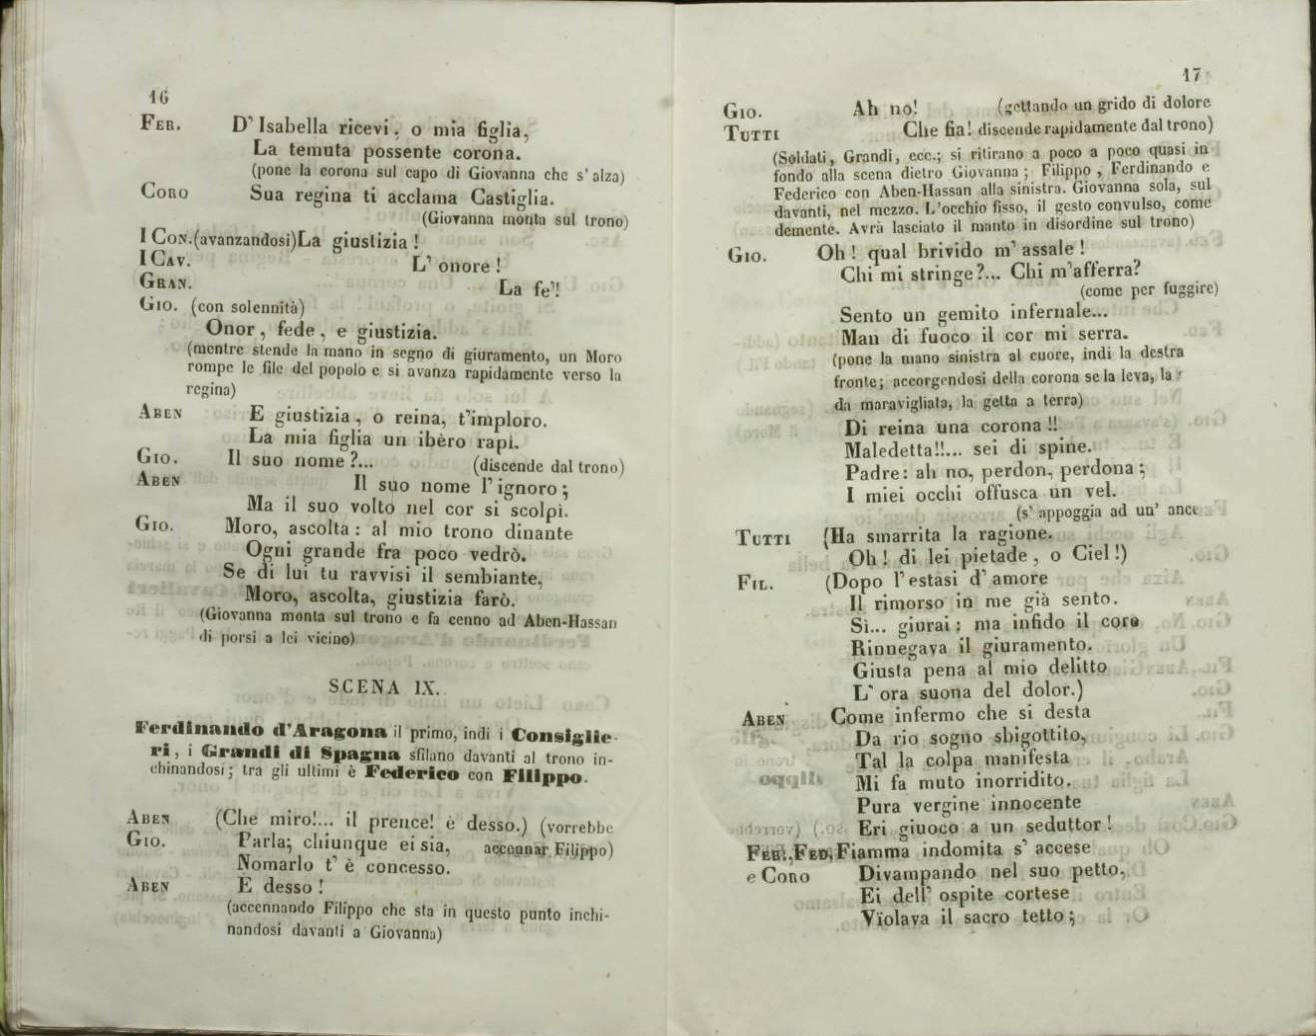 16
FER. D' Isabella ricevi, o mia figlia,
La temuta possente corona.
(pone la corona sul capo di Giovanna che s' alza)
CORO Sua regina ti acclama Castiglia.
(Giovanna monta sul trono)
I CON. (avanzandosi) La giustizia!
I CAV. L' onore!
GRAN. La fe'!
GIO. (con solennità)
Onor, fede, e giustizia.
(mentre stende la mano in segno di giuramento, un Moro
rompe le file del popolo e si avanza rapidamente verso la
regina)
ABEN E giustizia, o reina, t'imploro.
La mia figlia un ibèro rapì.
GIO. Il suo nome?... (discende dal trono)
ABEN Il suo nome l' ignoro;
Ma il suo volto nel cor si scolpì.
GIO. Moro, ascolta: al mio trono dinante
Ogni grande fra poco vedrò.
Se di lui tu ravvisi il sembiante,
Moro, ascolta, giustizia farò.
(Giovanna monta sul trono e fa cenno ad Aben-Hassan
di porsi a lei vicino)
SCENA IX.
Ferdinando d'Aragona il primo, indi i Consiglie-
ri, i Grandi di Spagna sfilano davanti al trono in-
chinandosi; tra gli ultimi è Federico con Filippo.
ABEN (Che miro!... il prence! è desso.) (vorrebbe
GIO. Parla; chiunque ei sia, accennar Filippo)
Nomarlo t' è concesso.
ABEN È desso!
(accennando Filippo che sta in questo punto inchi-
nandosi davanti a Giovanna)
17
GIO. Ah no! (gettando un grido di dolore
TUTTI Che fia! discende rapidamente dal trono)
(Soldati, Grandi, ecc.; si ritirano a poco a poco quasi in
fondo alla scena dietro Giovanna; Filippo, Ferdinando e
Federico con Aben-Hassan alla sinistra. Giovanna sola, sul
davanti, nel mezzo. L'occhio fisso, il gesto convulso, come
demente. Avrà lasciato il manto in disordine sul trono)
GIO. Oh! qual brivido m' assale!
Chi mi stringe?... Chi m'afferra?
(come per fuggire)
Sento un gemito infernale...
Man di fuoco il cor mi serra.
(pone la mano sinistra al cuore, indi la destra
fronte; accorgendosi della corona se la leva, la
da maravigliata, la getta a terra)
Di reina una corona!!
Maledetta!!... sei di spine.
Padre: ah no, perdon, perdona;
I miei occhi offusca un vel.
(s' appoggia ad un' anc
TUTTI (Ha smarrita la ragione.
Oh! di lei pietade, o Ciel!)
FIL. (Dopo l' estasi d' amore
Il rimorso in me già sento.
Sì... giurai: ma infido il core
Rinnegava il giuramento.
Giusta pena al mio delitto
L' ora suona del dolor.)
ABEN Come infermo che si desta
Da rio sogno sbigottito,
Tal la colpa manifesta
Mi fa muto inorridito.
Pura vergine innocente
Eri giuoco a un seduttor!
FER., FED, Fiamma indomita s' accese
e CORO Divampando nel suo petto,
Ei dell' ospite cortese
Violava il sacro tetto;